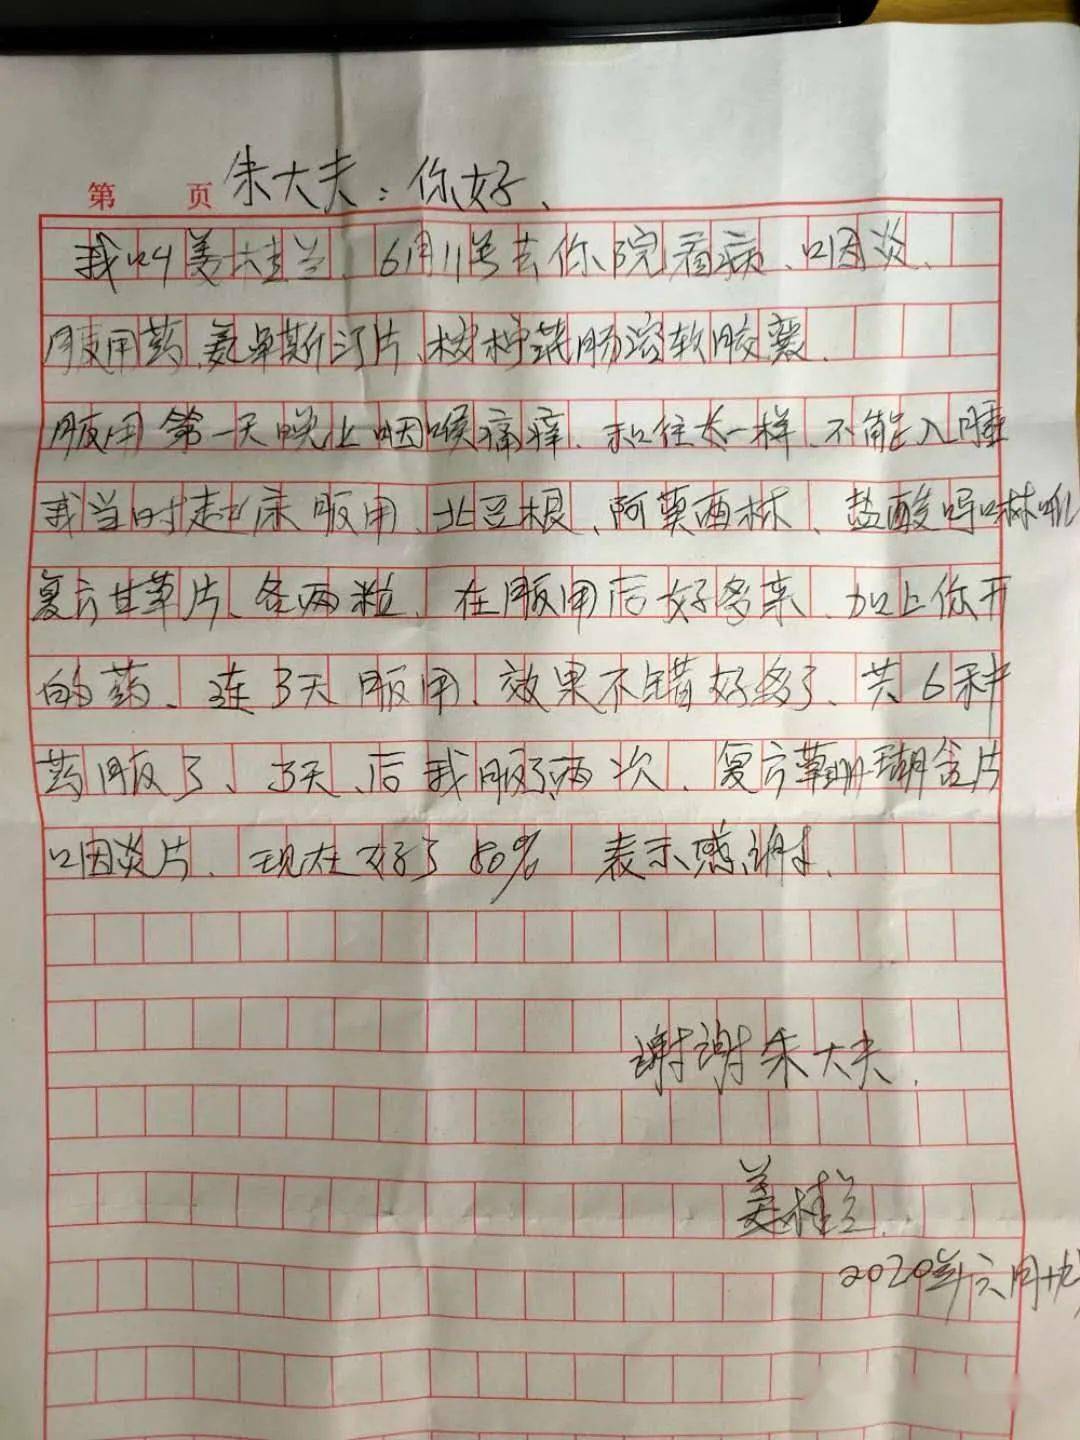 第 页 朱大夫:你好、
我叫姜桂兰、6月11号去你院看病、口因炎、
服用药、氨卓斯汀片、桉柠蒎肠溶软胶囊.
服用第一天晚上咽喉痛痒.和往长一样.不能入睡
我当时起床服用、北豆根、阿莫西林、盐酸吗啉呱
复方甘草片、各两粒、在服用后好多来、加上你开
的药、连3天服用、效果不错好多了、共6种
药服了、3天、后我服了两次、复方草珊瑚含片
口因炎片、现在好了80% 表示感谢.
谢谢朱大夫.
姜桂兰.
2020年六月十九